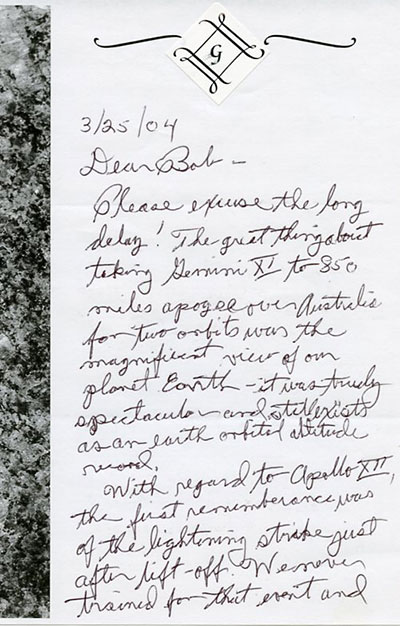 G
3/25/04
Dear Bob —
Please excuse the long
delay! The great thing about
taking Gemini XI to 850
miles apogee over Australia
for two orbits was the
magnificent view of our
planet Earth - it was truly
spectacular and still exists
as an earth orbital altitude
record.
With regard to Apollo XII,
the first rememberance was
of the lightning strike just
after lift-off. We never
trained for that event and